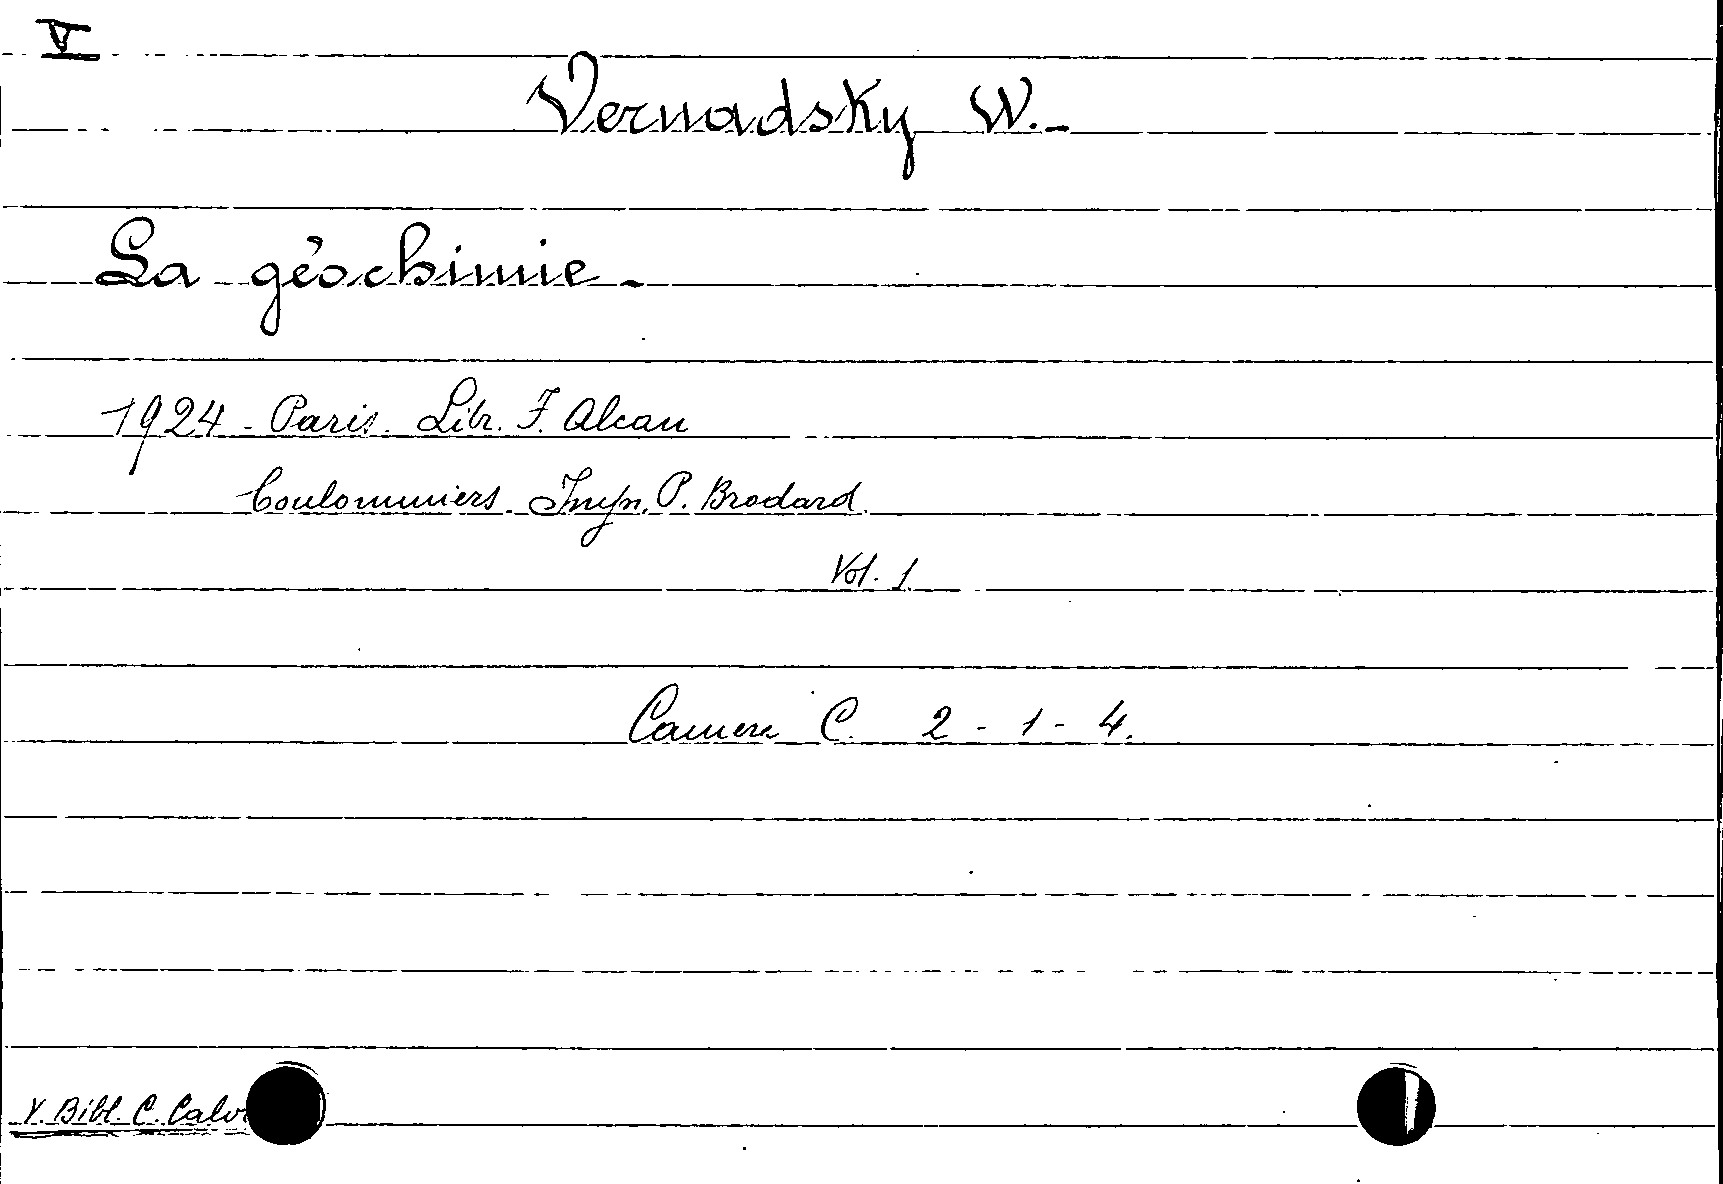 V
Vernadsky W.-
La géochimie.-
1924 - Paris. Libr. F. Alcan
Coulommiers. Imp. P. Brodard.
Vol. 1.
Camera C. 2 - 1 - 4.
V. Bibl. C.